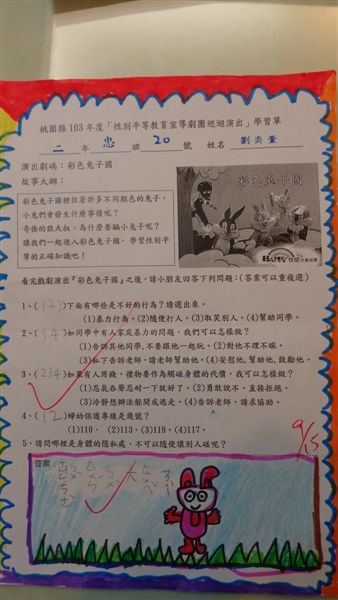 桃園縣 103 年度「性別平等教育宣導劇團巡迴演出」學習單
二 年 忠 班 20 號 姓名 劉奕萱
演出劇碼：彩色兔子國
故事大綱：
彩色兔子國裡住著許多不同顏色的兔子，
小兔們會發生什麼事情呢？
奇怪的狼大叔，為什麼要騙小兔呢？
讓我們一起進入彩色兔子國，學習性別平
等的正確知識吧！
彩色兔子國
HAPPY 快樂兒童劇團
看完戲劇演出『彩色兔子國』之後，請小朋友回答下列問題：(答案可以重複選)
1、(123)下面有哪些是不好的行為？請選出來。
(1)暴力行為。(2)隨便打人。(3)取笑別人。(4)幫助同學。
2、(34)如同學中有人家庭暴力的問題，我們可以怎樣做？
(1)告訴其他同學，不要跟他一起玩。(2)對他不理不睬。
(3)私下告訴老師，請老師幫助他。(4)安慰他，幫助他，鼓勵他。
3、(234)如果有人用錢、禮物要作為觸碰身體的代價，我可以怎樣做？
(1)忍氣吞聲忍耐一下就好了。(2)勇敢說不，直接拒絕。
(3)冷靜想辦法躲開或逃走。(4)告訴老師、請求協助。
4、(2)婦幼保護專線是幾號？
(1)110。(2)113。(3)119。(4)117。
5、請問哪裡是身體的隱私處，不可以隨便讓別人碰呢？
9/15
答案：